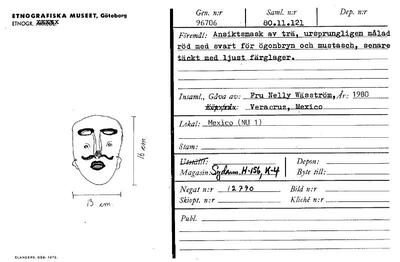 ETNOGRAFISKA MUSEET, Göteborg
ETNOGR.
Gen. n:r
96706
Saml. n:r
80.11.121
Dep. n:r
Föremål: Ansiktsmask av trä, ursprungligen målad
röd med svart för ögonbryn och mustasch, senare
täckt med ljust färglager.
Insaml., Gåva av: Fru Nelly Wäsström, År: 1980
Veracruz, Mexico
Lokal: Mexico (NU 1)
Stam:
18 cm
13 cm
Utställt:
Magasin: Sydam. H-156, K-4
Depon:
Byte till:
Negat n:r 12790
Bild n:r
Skiopt. n:r
Kliché n:r
Publ.
ELANDERS, GBG. 1972.